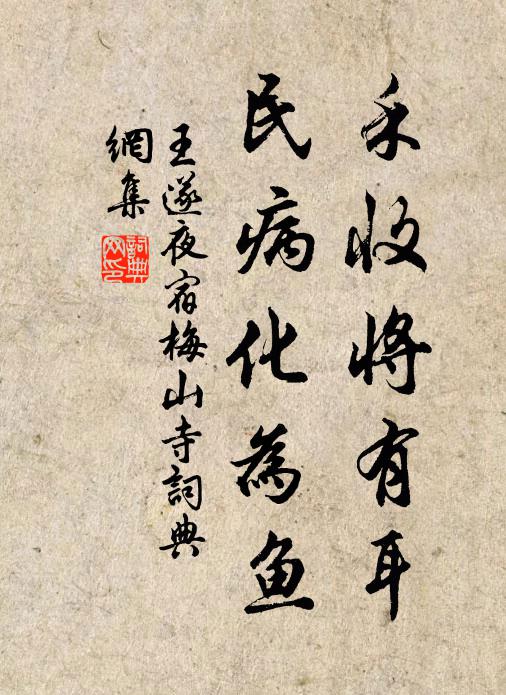 禾收将有耳
民病化為鱼
王遂夜宿梅山寺詞典
網集
詞典
网印